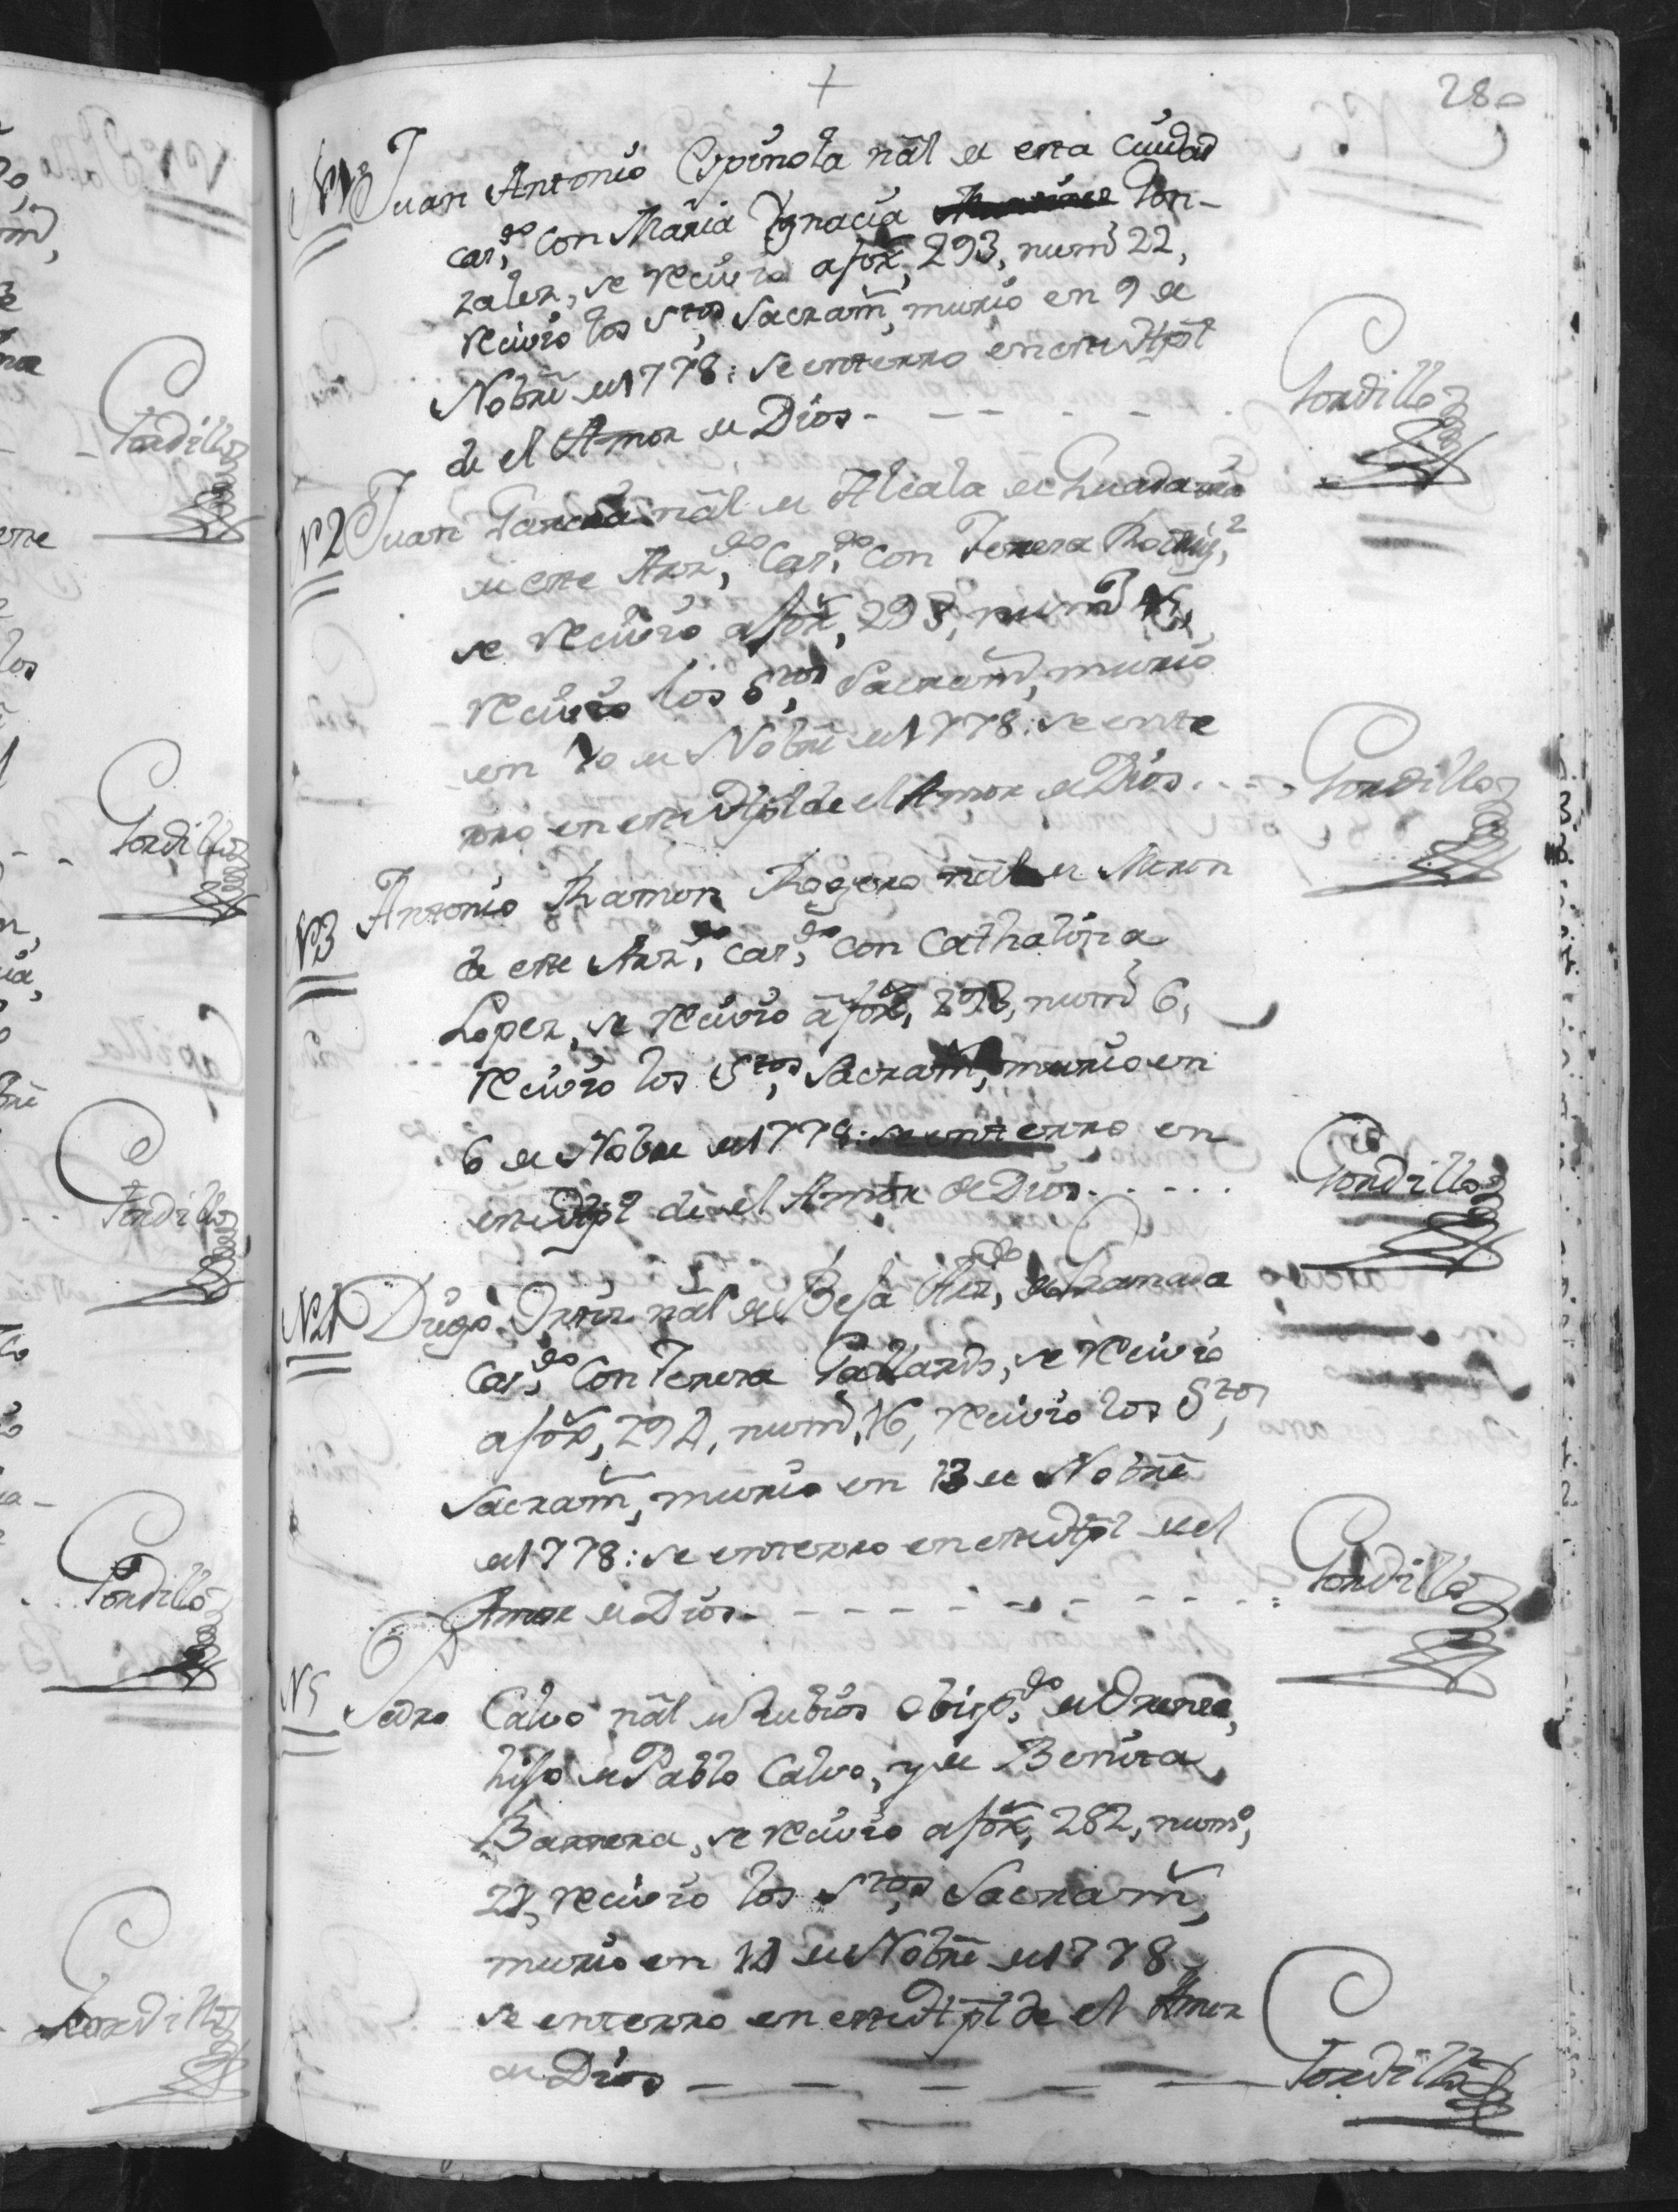 +
28
N1 Juan Antonio Espinola nãl de esta Ciudad
cas,do con Maria Ygnacia Gon-
zales, se recivio a fox, 293, numo 22,
recivio los Stos, Sacram, murio en 9 de
Nobrê de 1778: se enterro en este Hpl
de el Amor de Dios - - - - - Gordillo
N2 Juan Garcia nãl de Alcala de Guadaira
de este Arz,do Cas,do con Teresa Rodrig,z
se recivio a fox, 293, numo
recivio los Stos, Sacram, murio
en 10 de Nobrê de 1778: se ente
rro en este Hpl de el Amor de Dios - - - Gordillo
N3 Antonio Ramon Rogero nãl de Moron
de este Arz,do Cas,do con Cathalina
Lopez, se recivio a fox, 293, numo 6,
recivio los Stos, Sacram, murio en
6 de Nobre de 1778: se enterro en
este Hpl de el Amor de Dios - - - - Gordillo
N4 Diego Ortiz nãl de Besa Arz,do de Granada
Cas,do Con Teresa Gallardo, se recivio
a fox, 294, numo, 16, recivio los Stos,
Sacram, murio en 13 de Nobrê
de 1778: se enterro en este Hpl de el
Amor de Dios - - - - - - - - Gordillo
N5 Pedro Calvo nãl de Rubios Obisp,do de Orense,
hijo de Pablo Calvo, y de Benita
Barrera, se recivio a fox, 282, numo,
24, recivio los Stos, Sacram,
murio en 14 de Nobrê de 1778
se enterro en este Hpl de el Amor
de Dios - - - - - Gordillo
Gordillo
Gordillo
Gordillo
Gordillo
Gordillo